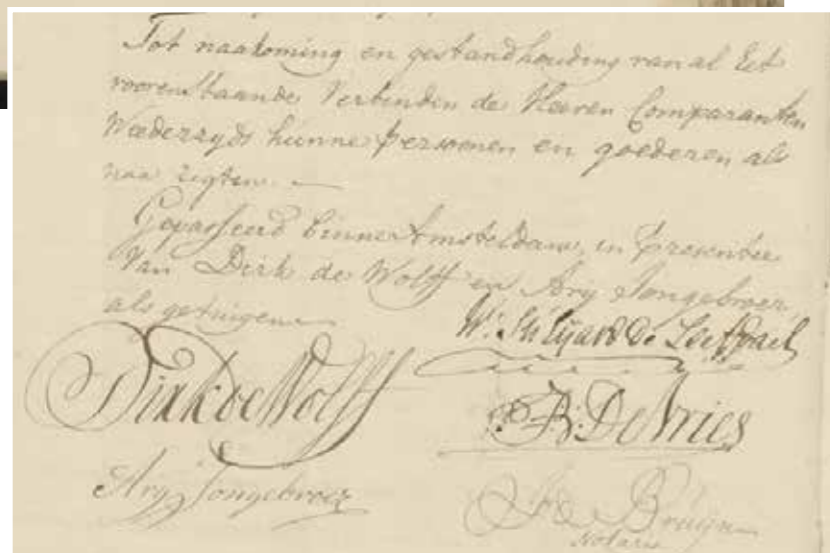 Tot naakoming en gestandhouding van al het
voorenstaande Verbinden de Heeren Comparanten
Wederzyds hunne persoonen en goederen als
naa regten.
Gepasseerd binnen Amsteldam, in Presentie
Van Dirk de Wolff en Arij Jongebroer,
als getuigen
W: de
Dirk de Wolff
B: De Vries
Ary Jongebroer
de Bruijn
Notaris